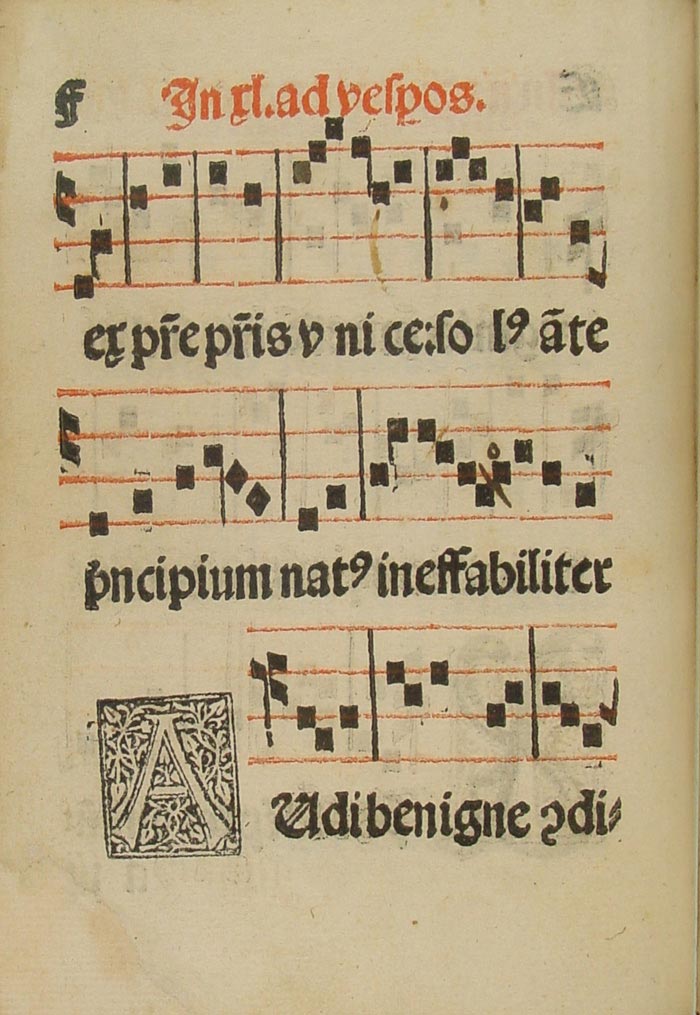 In xl. ad vesp̱os.
ex pr̃e pr̃is v ni ce: so lꝰ ãte
pͥncipium natꝰ ineffabiliter
A
Udi benigne ꝯdi⸗